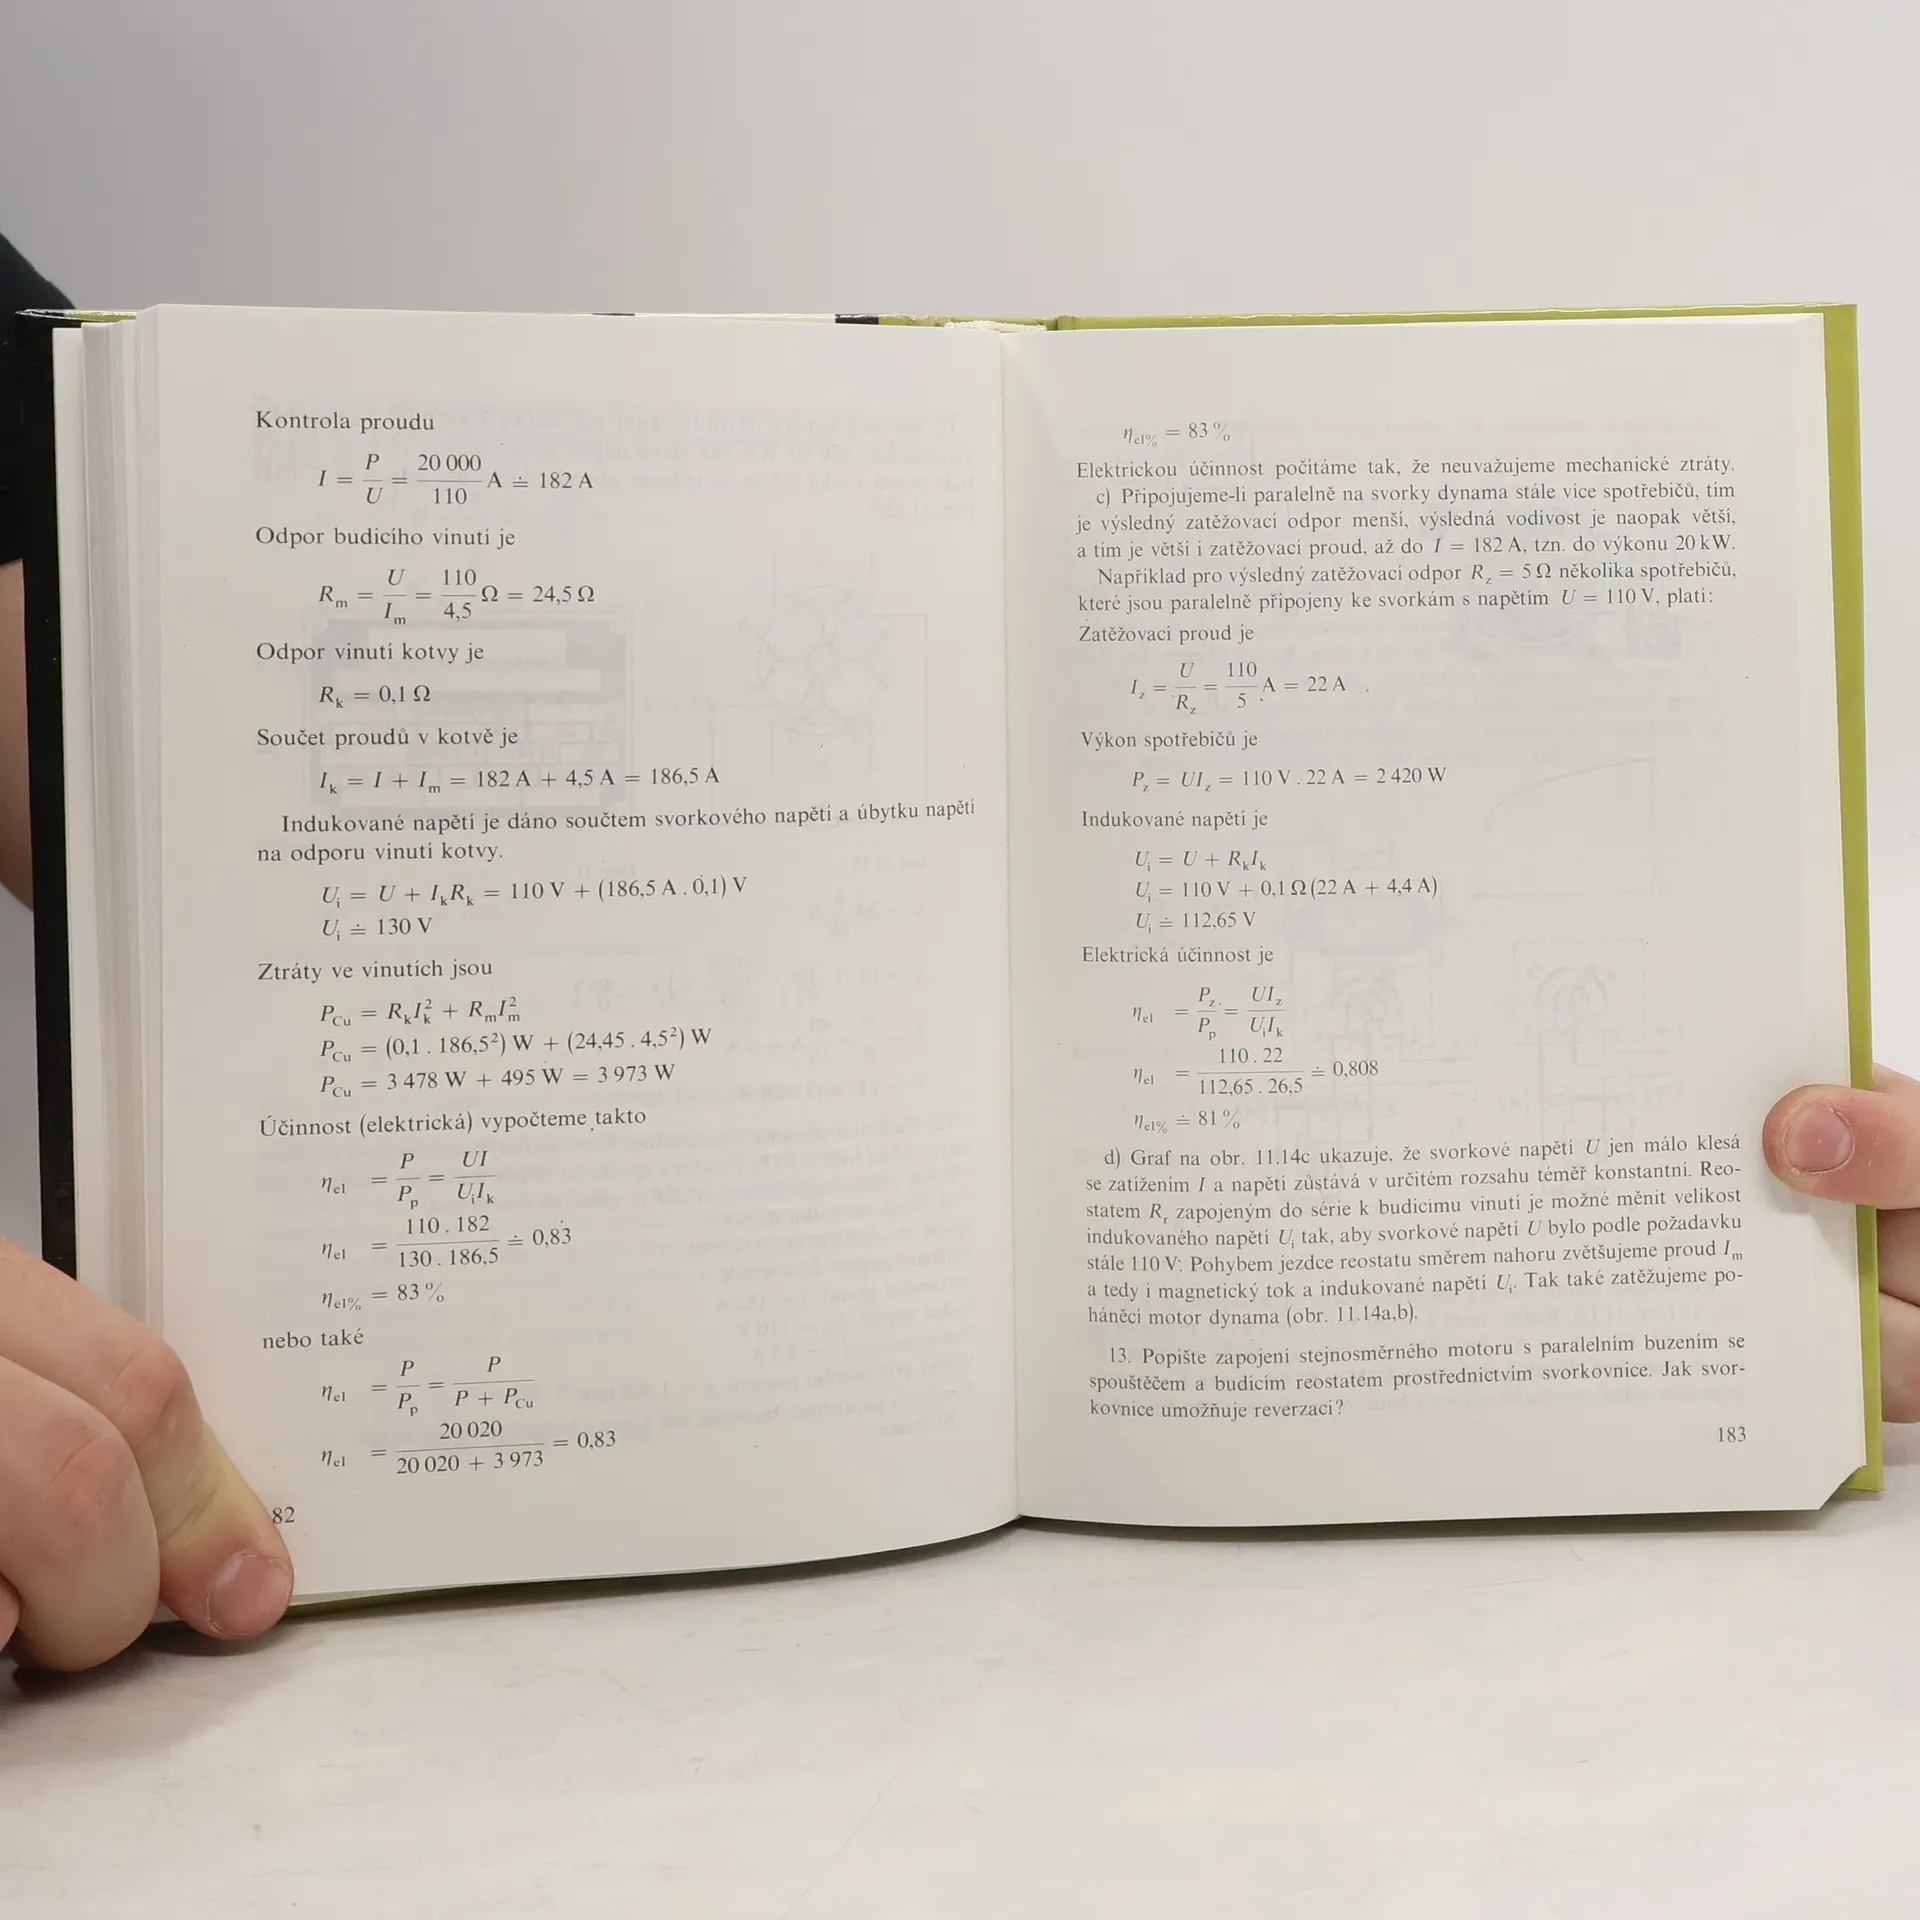 Kontrola proudu
I = P/U = 20 000/110 A ≐ 182 A
Odpor budicího vinutí je
Rₘ = U/Iₘ = 110/4,5 Ω = 24,5 Ω
Odpor vinutí kotvy je
Rₖ = 0,1 Ω
Součet proudů v kotvě je
Iₖ = I + Iₘ = 182 A + 4,5 A = 186,5 A
Indukované napětí je dáno součtem svorkového napětí a úbytku napětí
na odporu vinutí kotvy.
Uᵢ = U + IₖRₖ = 110 V + (186,5 A . 0,1) V
Uᵢ ≐ 130 V
Ztráty ve vinutích jsou
P_Cu = RₖIₖ² + RₘIₘ²
P_Cu = (0,1 . 186,5²) W + (24,45 . 4,5²) W
P_Cu = 3 478 W + 495 W = 3 973 W
Účinnost (elektrická) vypočteme takto
η_el = P/Pₚ = UI/UᵢIₖ
η_el = 110 . 182/130 . 186,5 ≐ 0,83
η_el% = 83 %
nebo také
η_el = P/Pₚ = P/P + P_Cu
η_el = 20 020/20 020 + 3 973 = 0,83
82
η_el% = 83 %
Elektrickou účinnost počítáme tak, že neuvažujeme mechanické ztráty.
c) Připojujeme-li paralelně na svorky dynama stále více spotřebičů, tím
je výsledný zatěžovací odpor menší, výsledná vodivost je naopak větší,
a tím je větší i zatěžovací proud, až do I = 182 A, tzn. do výkonu 20 kW.
Například pro výsledný zatěžovací odpor R_z = 5 Ω několika spotřebičů,
které jsou paralelně připojeny ke svorkám s napětím U = 110 V, platí:
Zatěžovací proud je
I_z = U/R_z = 110/5 A = 22 A
Výkon spotřebičů je
P_z = UI_z = 110 V . 22 A = 2 420 W
Indukované napětí je
Uᵢ = U + RₖIₖ
Uᵢ = 110 V + 0,1 Ω (22 A + 4,4 A)
Uᵢ ≐ 112,65 V
Elektrická účinnost je
η_el = P_z/Pₚ = UI_z/UᵢIₖ
η_el = 110 . 22/112,65 . 26,5 ≐ 0,808
η_el% ≐ 81 %
d) Graf na obr. 11.14c ukazuje, že svorkové napětí U jen málo klesá
se zatížením I a napětí zůstává v určitém rozsahu téměř konstantní. Reo-
statem R_r zapojeným do série k budicímu vinutí je možné měnit velikost
indukovaného napětí Uᵢ tak, aby svorkové napětí U bylo podle požadavku
stále 110 V: Pohybem jezdce reostatu směrem nahoru zvětšujeme proud Iₘ
a tedy i magnetický tok a indukované napětí Uᵢ. Tak také zatěžujeme po-
háněcí motor dynama (obr. 11.14a,b).
13. Popište zapojení stejnosměrného motoru s paralelním buzením se
spouštěčem a budicím reostatem prostřednictvím svorkovnice. Jak svor-
kovnice umožňuje reverzaci?
183